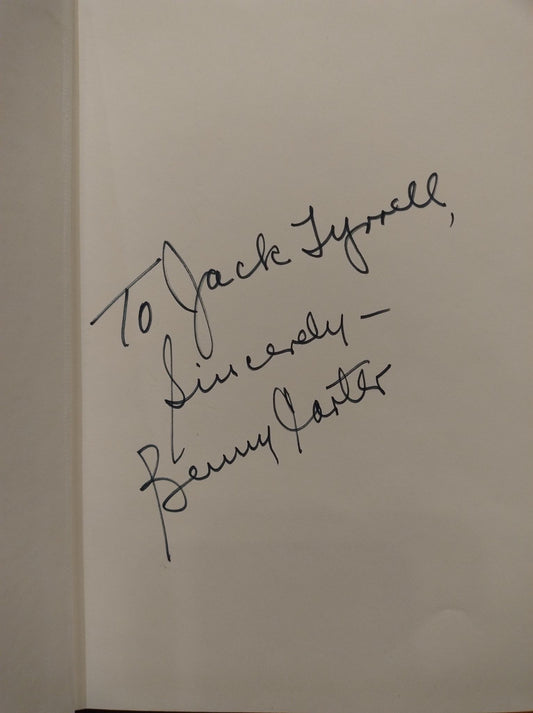 To Jack Tyrrell,
Sincerely -
Benny Carter